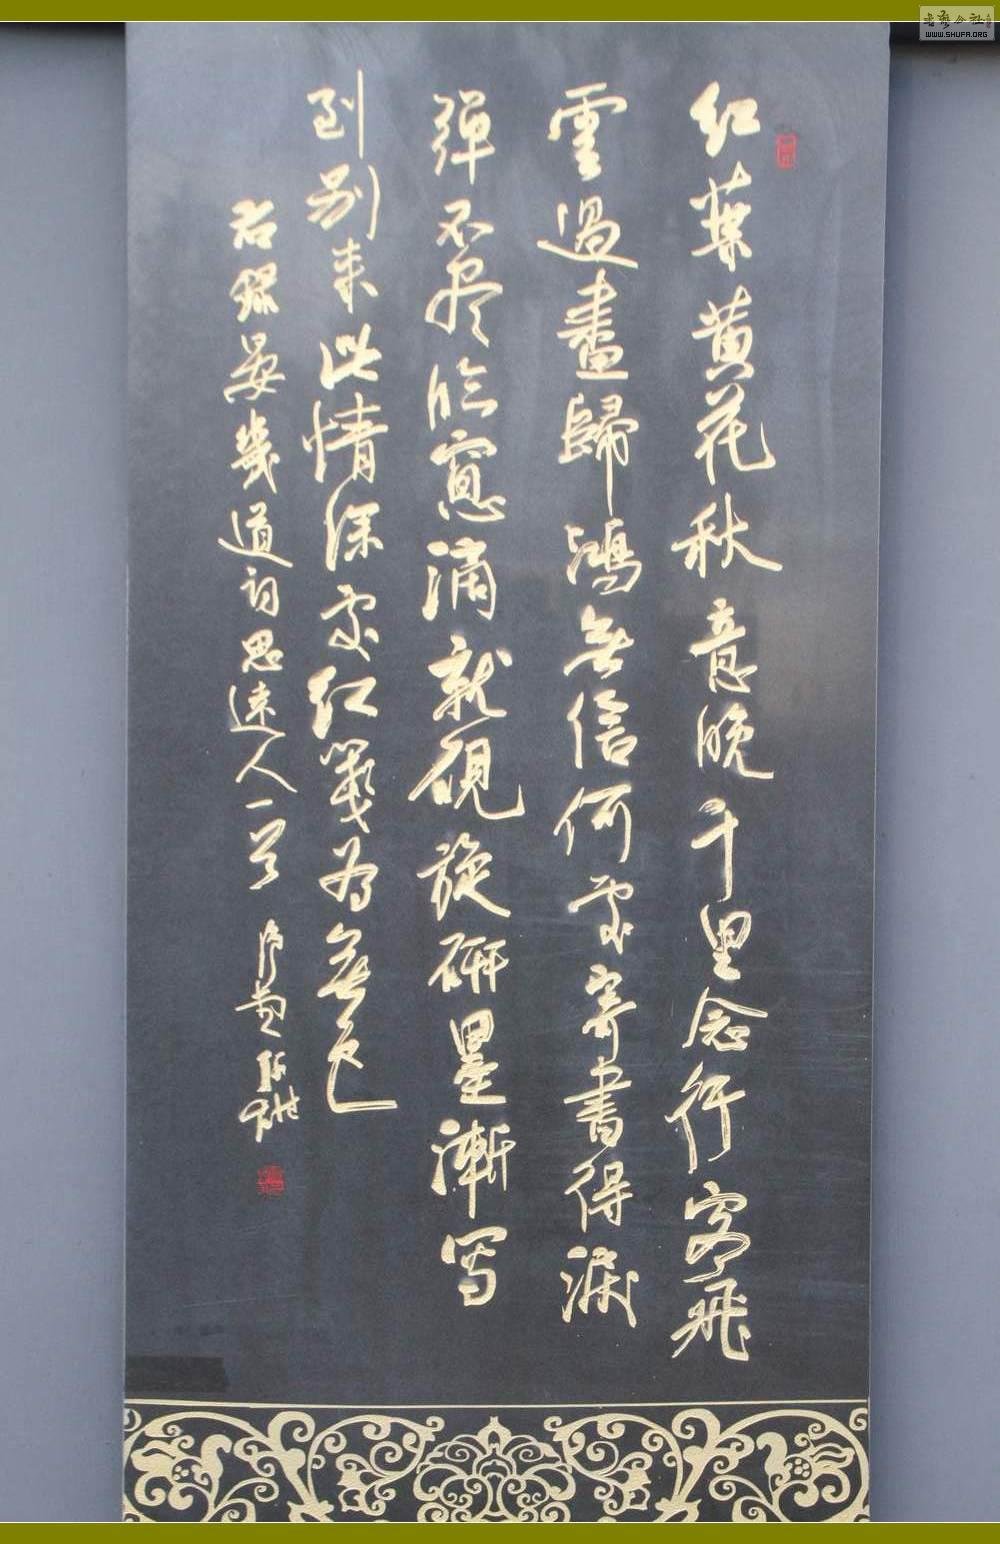 红葉黄花秋意晚千里念行客飛
雲過盡歸鴻無信何處寄書得淚
彈不尽臨窻滴就硯旋研墨漸寫
到别来此情深處红箋為無色
右錄晏幾道詞思遠人一首
书艺公社
WWW.SHUFA.ORG